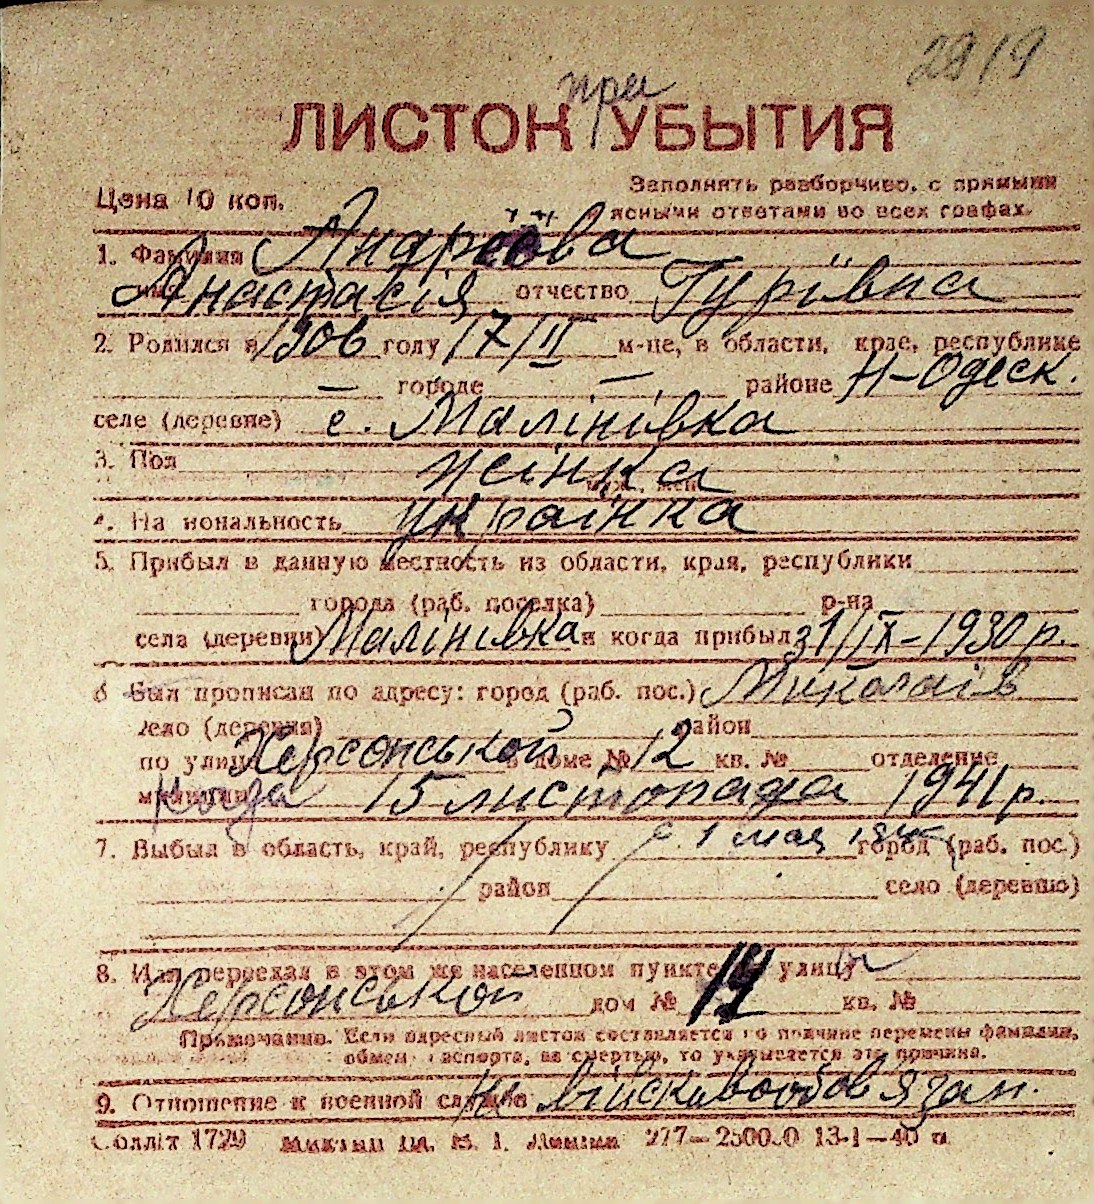 2919
при
ЛИСТОК УБЫТИЯ
Цена 10 коп.
Заполнять разборчиво, с прямыми
ясными ответами во всех графах.
1. Фамилия Андреєва
имя Анастасія отчество Гурівна
2. Родился в 1906 году 17/II м-це, в области, крае, республике
— городе — районе Н-Одеск.
селе (деревне) с. Малінівка
3. Пол жінка
муж., жен.
4. На иональность українка
5. Прибыл в данную местность из области, края, республики
города (раб. поселка) р-на
села (деревни) Малінівка и когда прибыл з 1/IX-1930 р.
6 Был прописан по адресу: город (раб. пос.) Миколаїв
село (деревня) район
по улице Херсонський в доме № 12 кв. № отделение
милиции Когда 15 листопада 1941 р.
7. Выбыл в область, край, республику с 1 мая город (раб. пос.)
район село (деревню)
8. Или переехал в этом же населенном пункте улицу
Херсонської дом № 14 кв. №
Примечание. Если адресный листок составляется по причине перемены фамилии,
обмен паспорта, за смертью, то указывается эта причина.
9. Отношение к военной службе не військовообов'язан.
Соллiт 1729 277—2500.0 13-1—40 п